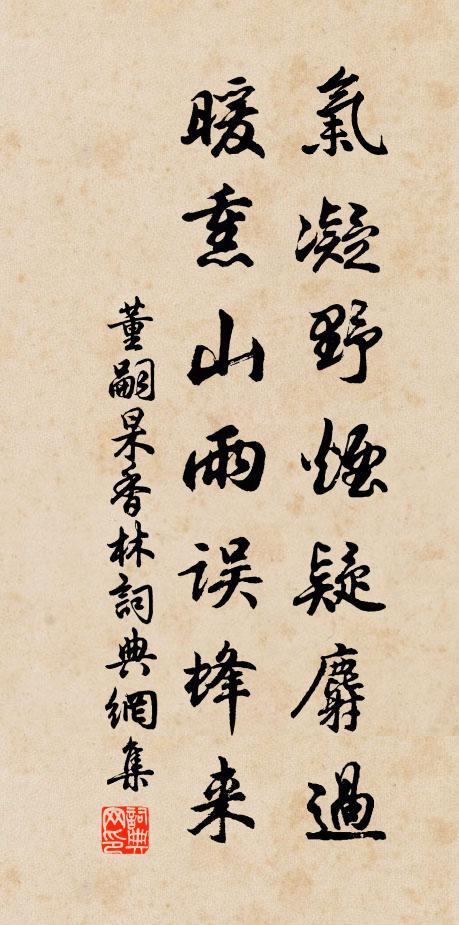 氣凝野煙疑麝過
暖熏山雨误蜂来
董嗣杲香林詞典網集
詞典
网印